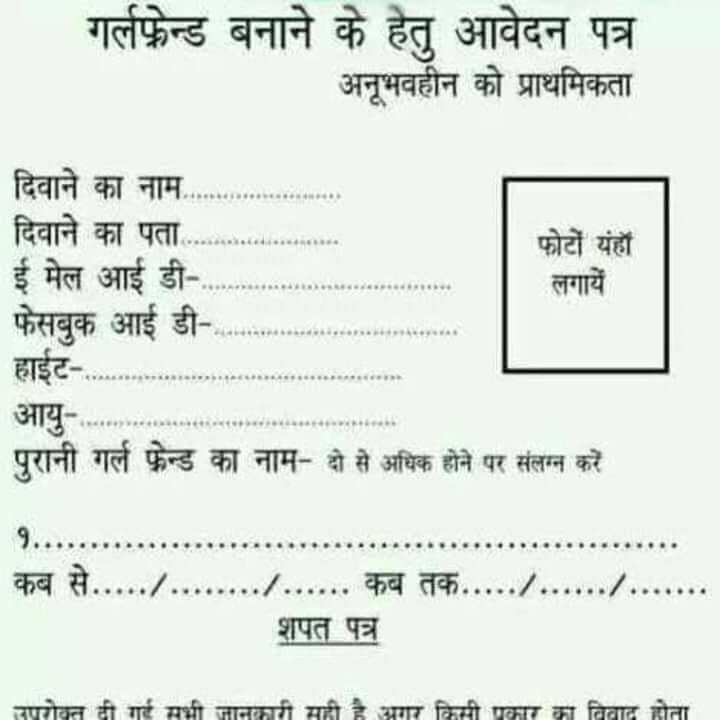 गर्लफ्रेन्ड बनाने के हेतु आवेदन पत्र
अनूभवहीन को प्राथमिकता
दिवाने का नाम......................
दिवाने का पता......................
ई मेल आई डी-..................................
फेसबुक आई डी-..................................
हाईट-...........................................
आयु-...........................................
फोटों यंहॉ
लगायें
पुरानी गर्ल फ्रेन्ड का नाम- दो से अधिक होने पर संलग्न करें
१.........................................................
कब से...../......../...... कब तक...../....../.......
शपत पत्र
उपरोक्त दी गई सभी जानकारी सही है अगर किसी प्रकार का विवाद होता